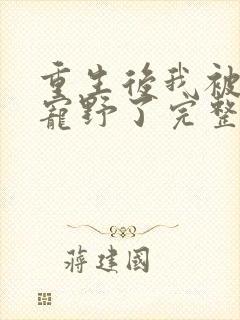 重生後我被
寵野了完整
蔣建國